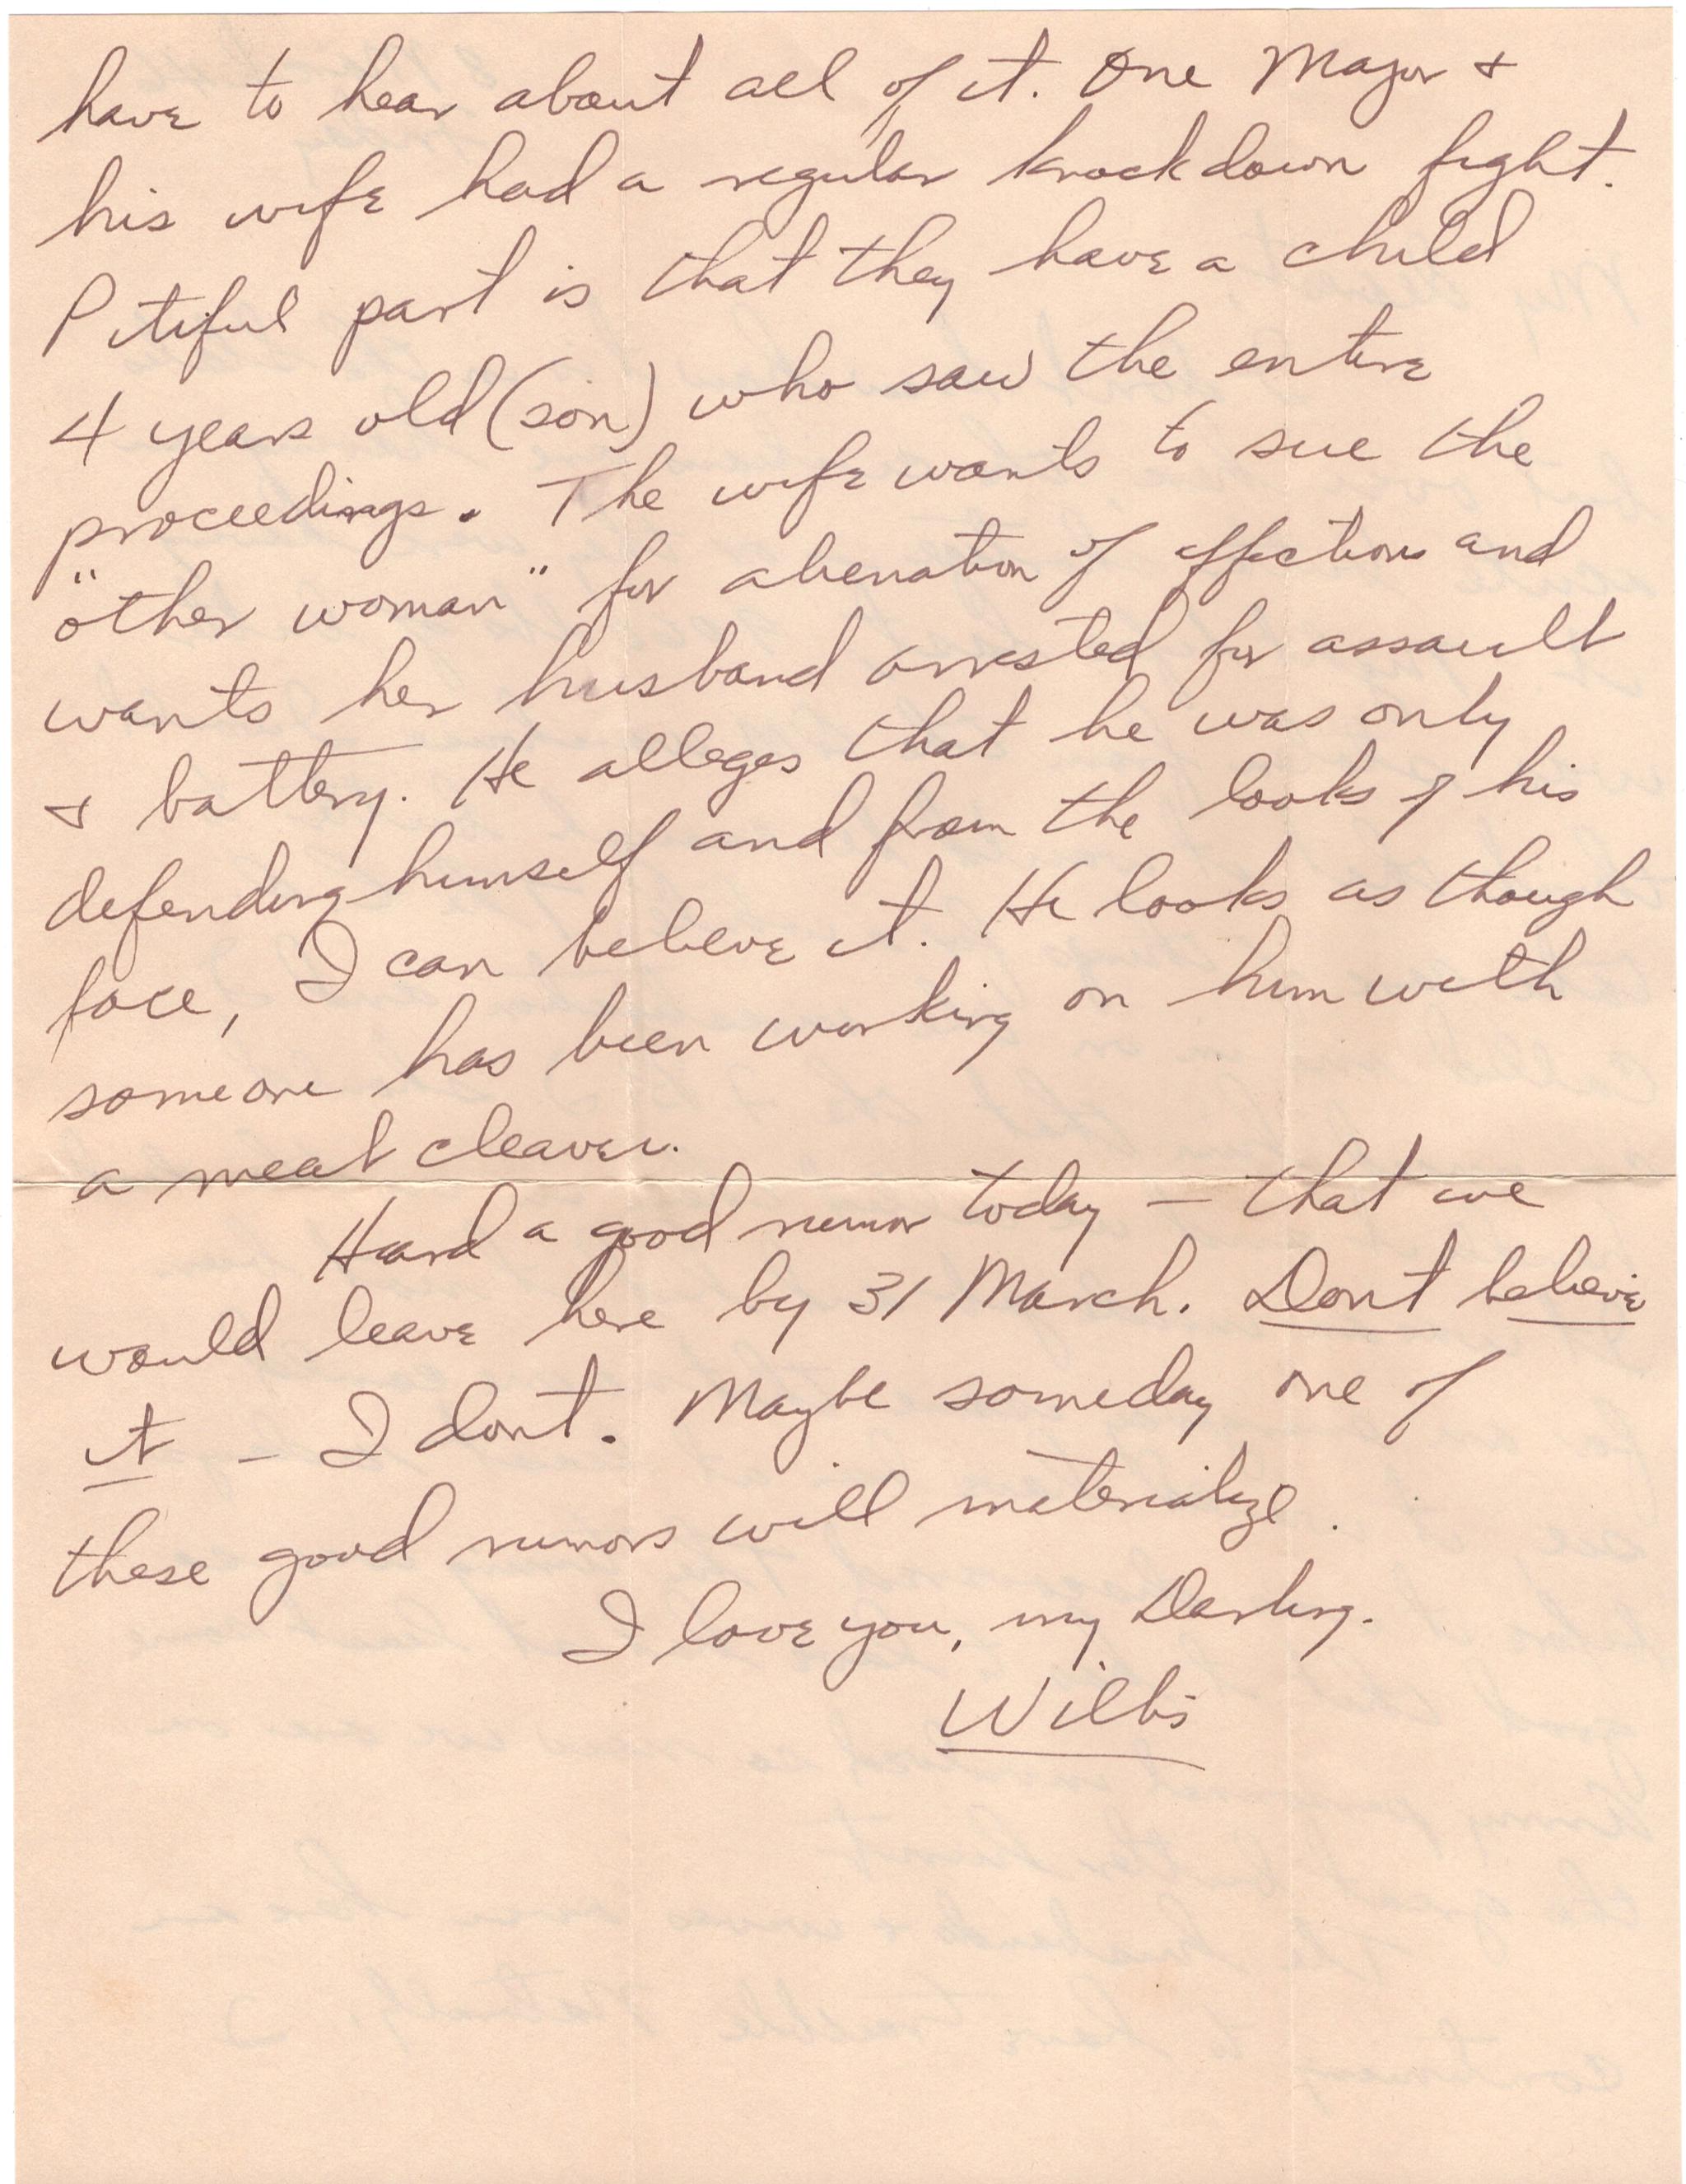 have to hear about all of it. One Major &
his wife had a regular knock down fight.
Pitiful part is that they have a child
4 years old (son) who saw the entire
proceedings. The wife wants to sue the
"other woman" for alienation of affections and
wants her husband arrested for assault
& battery. He alleges that he was only
defending himself and from the looks of his
face, I can believe it. He looks as though
someone has been working on him with
a meat cleaver.
Heard a good rumor today – that we
would leave here by 31 March. Dont believe
it – I dont. Maybe someday one of
these good rumors will materialize.
I love you, my Darling.
Willis